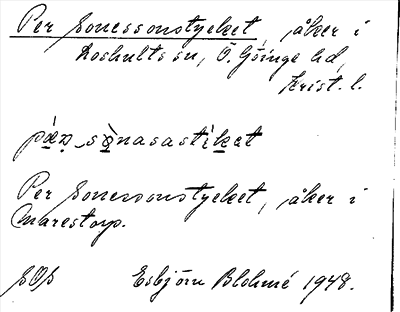 Per Sonessonstycket, åker i
Loshults sn, Ö. Göinge hd,
Krist. l.
pæṇ sǫ̀nasastíkat
Per Sonessonstycket, åker i
Marestorp.
SOS Esbjörn Blohmé 1948.